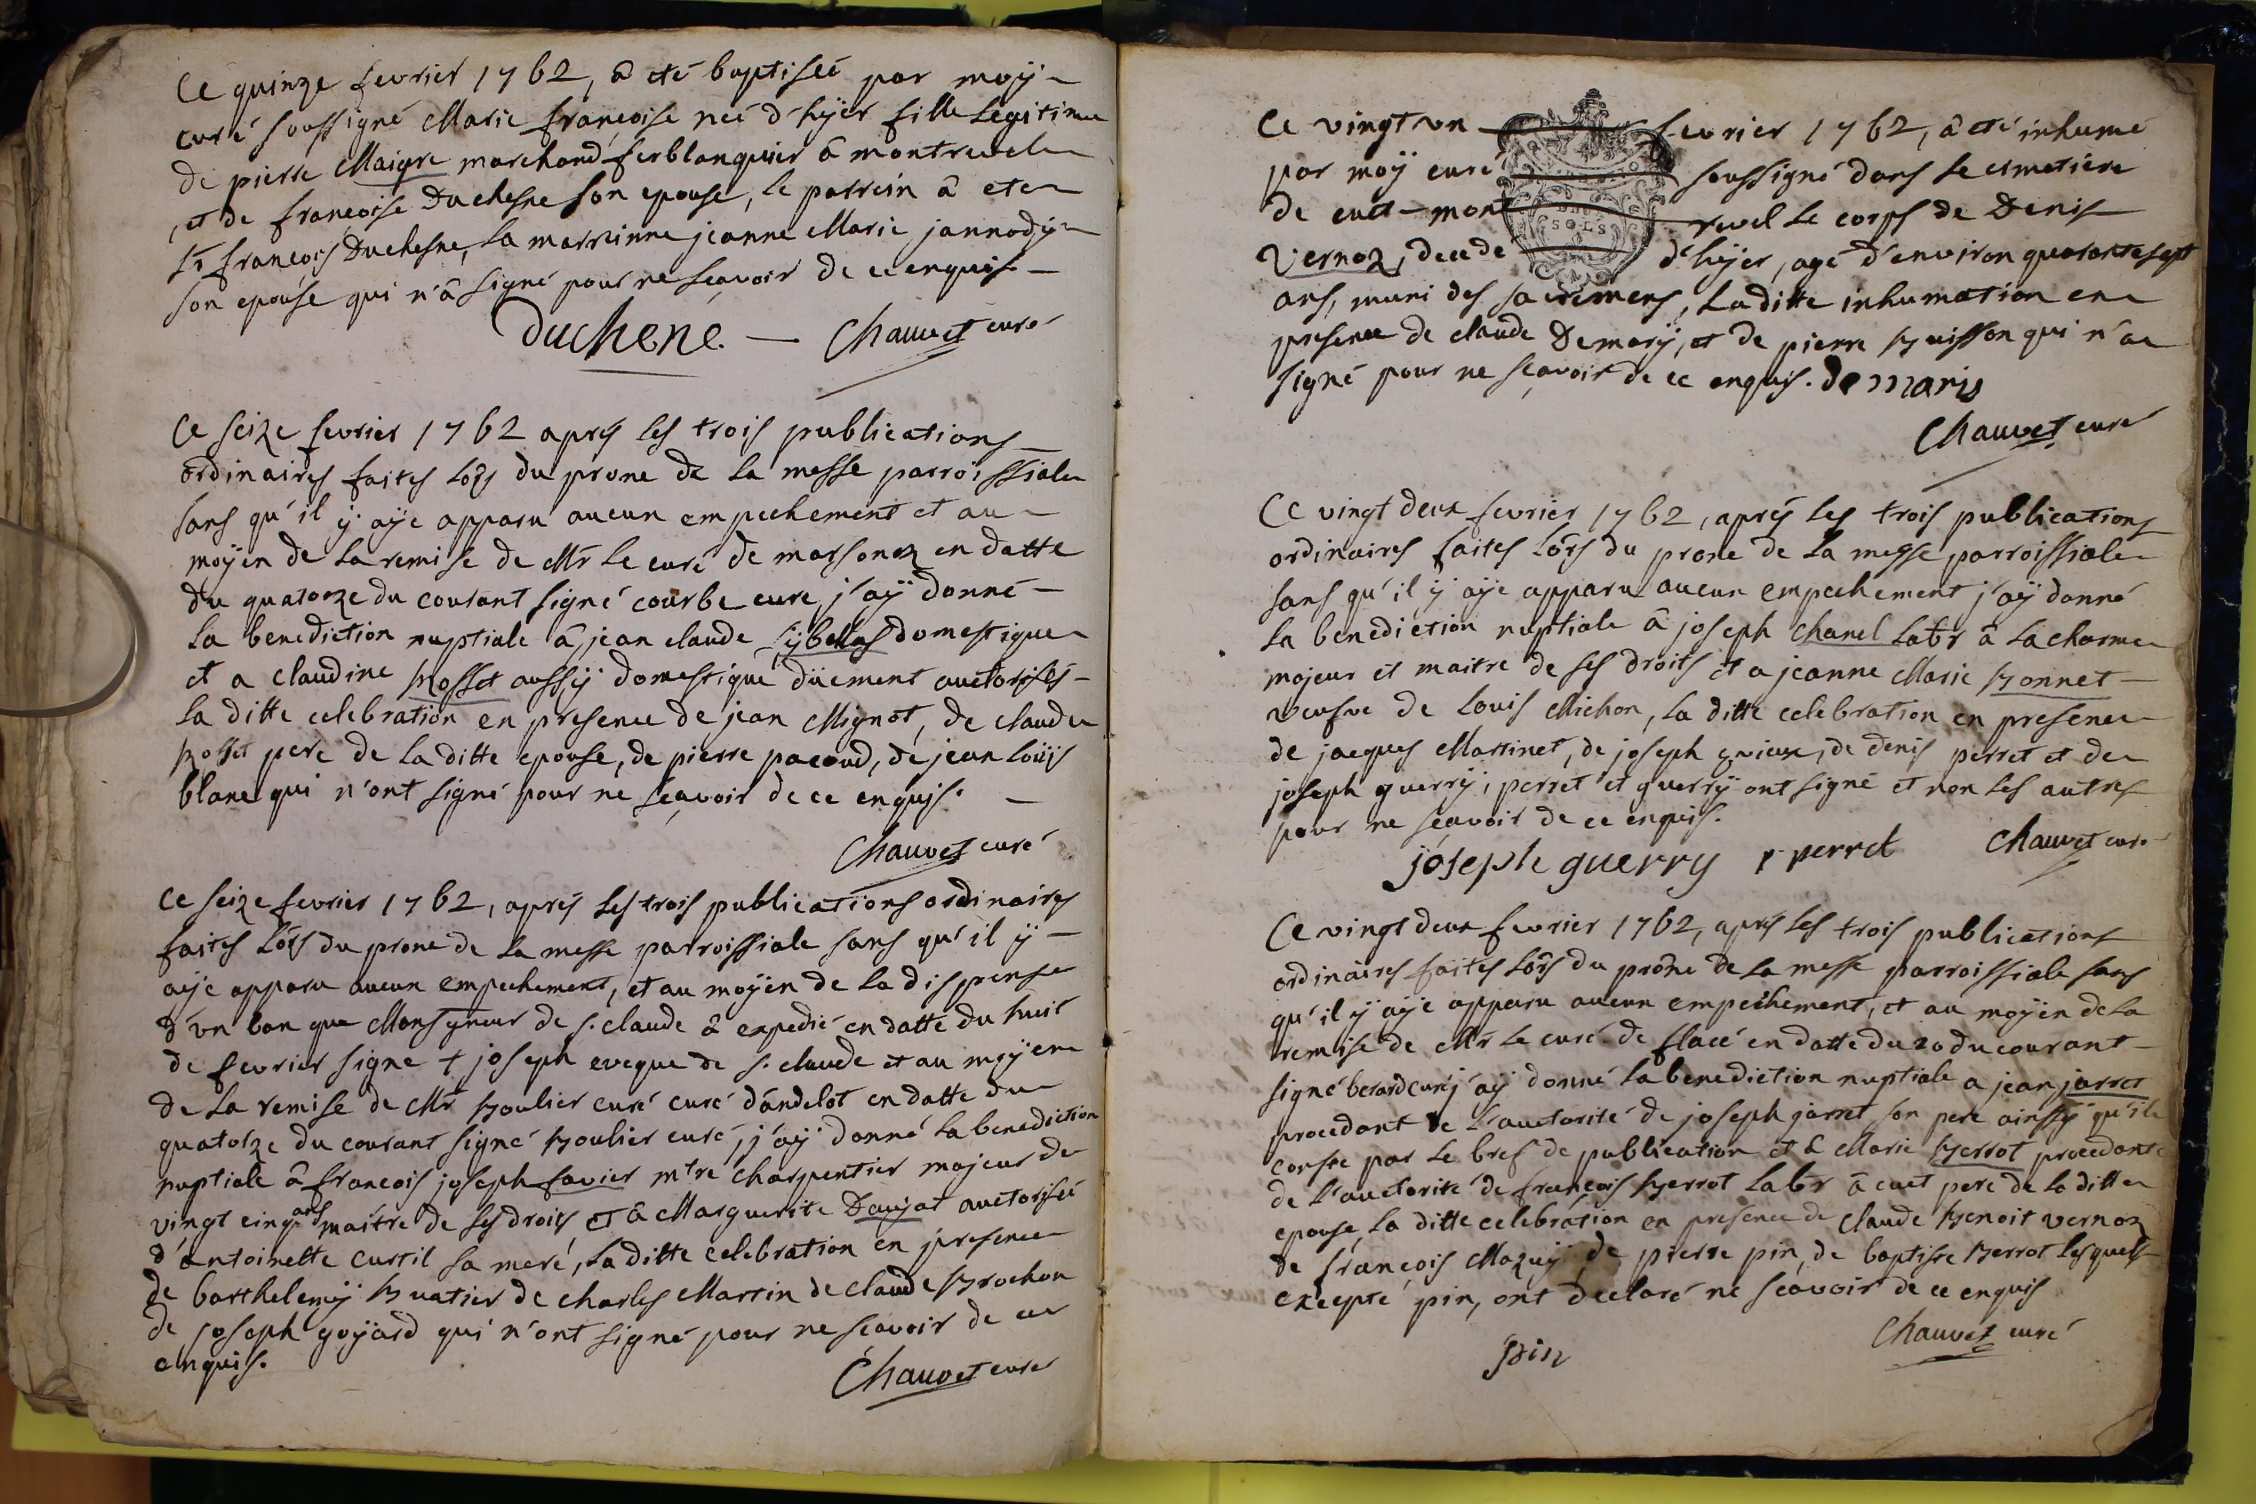 Ce quinze fevrier 1762, â eté baptiseé par moÿ
curé soussigné Marie françoise neé d'hÿer fille legitime
de pierre Maigre marchand ferblanquier â montrevel
et de françoise Duchesne son epouse, le parrein â ete
Sr françois Duchesne, la marreinne jeanne Marie jannody
son epouse qui n'â signé pour ne sçavoir de ce enquis.
duchene. Chauvet curé
Ce seize fevrier 1762 aprés les trois publications
ordinaires faites lôrs du prone de la messe parroissiale
sans qu'il ÿ aÿe apparu aucun empechement et au
moÿen de la remise de Mr le curé de marsonaz en datte
du quatorze du courant signé courbe cure, j'aÿ donné
la benediction nuptiale â jean claude Sÿbellas domestique
et a claudine Rosset aussÿ domestique düement auctorisés
la ditte celebration en presence de jean Mignot, de claude
Rosset pere de la ditte epouse, de pierre pacoud, de jean loüis
blanc qui n'ont signé pour ne sçavoir de ce enquis.
Chauvet curé
Ce seize fevrier 1762, aprés les trois publications ordinaires
faites lôrs du prone de la messe parroissiale sans qu'il ÿ
aÿe apparu aucun empechement, et au moÿen de la dispense
d'vn ban que Monsgneur de s. claude â expedié en datte du huit
de fevrier signe + joseph eveque de s. claude et au moÿen
de la remise de Mr Boulier curé curé d'andelot en datte du
quatorze du courant signé Boulier curé, j'aÿ donné la benediction
nuptiale â françois joseph favier mtre charpentier majeur de
vingt cinq ans maitre de ses droits, et â Marguerite Daujat auctorisée
d'antoinette curtil sa meré, la ditte celebration en presence
de barthelemÿ Buatier de charles Martin de claude Brochon
de joseph goÿard qui n'ont signé pour ne sçavoir de ce
enquis.
Chauvet curé
Ce vingt vn fevrier 1762, â eté inhumé
par moÿ curé soussigné dans le cimetiere
de cuet-montrevel le corps de Denis
Vernoz, decedé d'hÿer, agé d'environ quarante sept
ans, muni des sacremens, la ditte inhumation en
presence de claude Demarÿ, et de pierre Buisson qui n'a
signé pour ne sçavoir de ce enquis. de maris
Chauvet curé
Ce vingt deux fevrier 1762, aprés les trois publications
ordinaires faites lôrs du prone de la messe parroissiale
sans qu'il ÿ aÿe apparu aucun empechement j'aÿ donné
la benediction nuptiale â joseph Chanel labr â la charme
majeur et maitre de ses droits et a jeanne Marie Bonnet
veufve de louis Michon, la ditte celebration en presence
de jacques Martinet, de joseph de denis perret et de
joseph guerrÿ, perret et guerrÿ ont signé et non les autres
pour ne sçavoir de ce enquis.
joseph guerry perret Chauvet curé
Ce vingt deux fevrier 1762, aprés les trois publications
ordinaires faites lôrs du prône de la messe parroissiale sans
qu'il ÿ aÿe apparu aucun empechement, et au moÿen de la
remise de Mr le curé de flacé en datte du 20 du courant
signé berard curé j'aÿ donné la benediction nuptiale a jean jarret
procedant de l'auctorité de joseph jarret son pere ainssÿ qu'il
conste par le bref de publication et â Marie Berrot procedante
de l'auctorité de françois Berrot labr â cuet pere de la ditte
epouse, la ditte celebration en presence de Claude Benoit vernoz
de françois Mazuÿ de pierre pin, de baptiste Berrot lesquels
excepté pin, ont declaré ne sçavoir de ce enquis
pin Chauvet curé